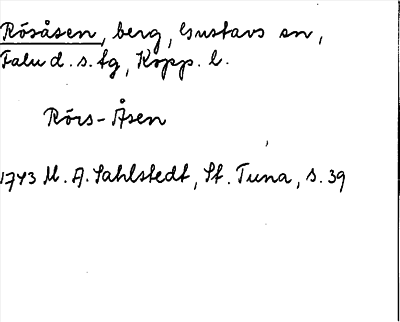 Rösåsen, berg, Gustavs sn,
Falu d. s. tg, Kopp. l.
Rörs-Åsen
1743 M. A. Sahlstedt, St. Tuna, s. 39